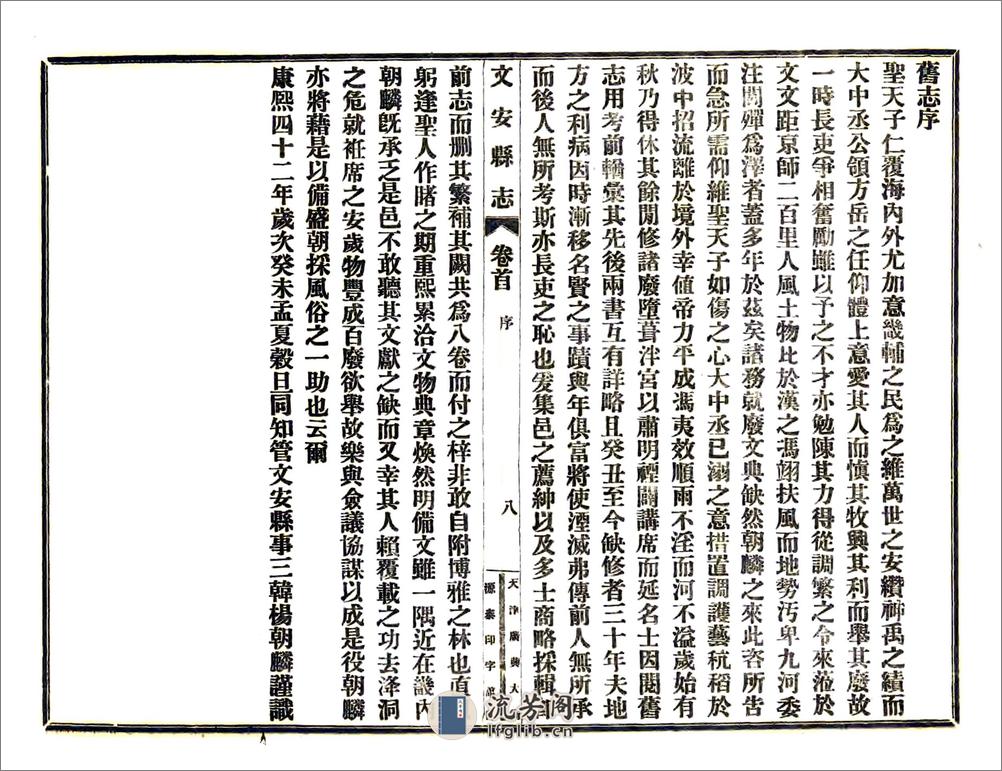 舊志序
聖天子仁覆海內外尤加意畿輔之民爲之維萬世之安纘神禹之績而
大中丞公領方岳之任仰體上意愛其人而慎其牧興其利而舉其廢故
一時長吏爭相奮勵雖以予之不才亦勉陳其力得從調繁之令來蒞於
文文距京師二百里人風土物比於漢之馮翊扶風而地勢汚卑九河委
注閭殫爲澤者蓋多年於茲矣諸務就廢文典缺然朝麟之來此咨所告
而急所需仰維聖天子如傷之心大中丞已溺之意措置調護藝秔稻於
波中招流離於境外幸値帝力平成馮夷效順雨不淫而河不溢歲始有
秋乃得休其餘閒修諸廢墮葺泮宮以肅明禋闢講席而延名士因閱舊
志用考前輶彙其先後兩書互有詳略且癸丑至今缺修者三十年夫地
方之利病因時漸移名賢之事蹟與年俱富將使湮滅弗傳前人無所承
而後人無所考斯亦長吏之恥也爰集邑之薦紳以及多士商略採輯
文安縣志
卷首
序
八
天津廣興大
源泰印字館
前志而刪其繁補其闕共爲八卷而付之梓非敢自附博雅之林也直
躬逢聖人作睹之期重熙累洽文物典章煥然明備文雖一隅近在畿內
朝麟旣承乏是邑不敢聽其文獻之缺而又幸其人賴覆載之功去洚洞
之危就袵席之安歲物豐成百廢欲舉故樂與僉議協謀以成是役朝麟
亦將藉是以備盛朝採風俗之一助也云爾
康熙四十二年歲次癸未孟夏穀旦同知管文安縣事三韓楊朝麟謹識
流芳阁
lfglib.cn